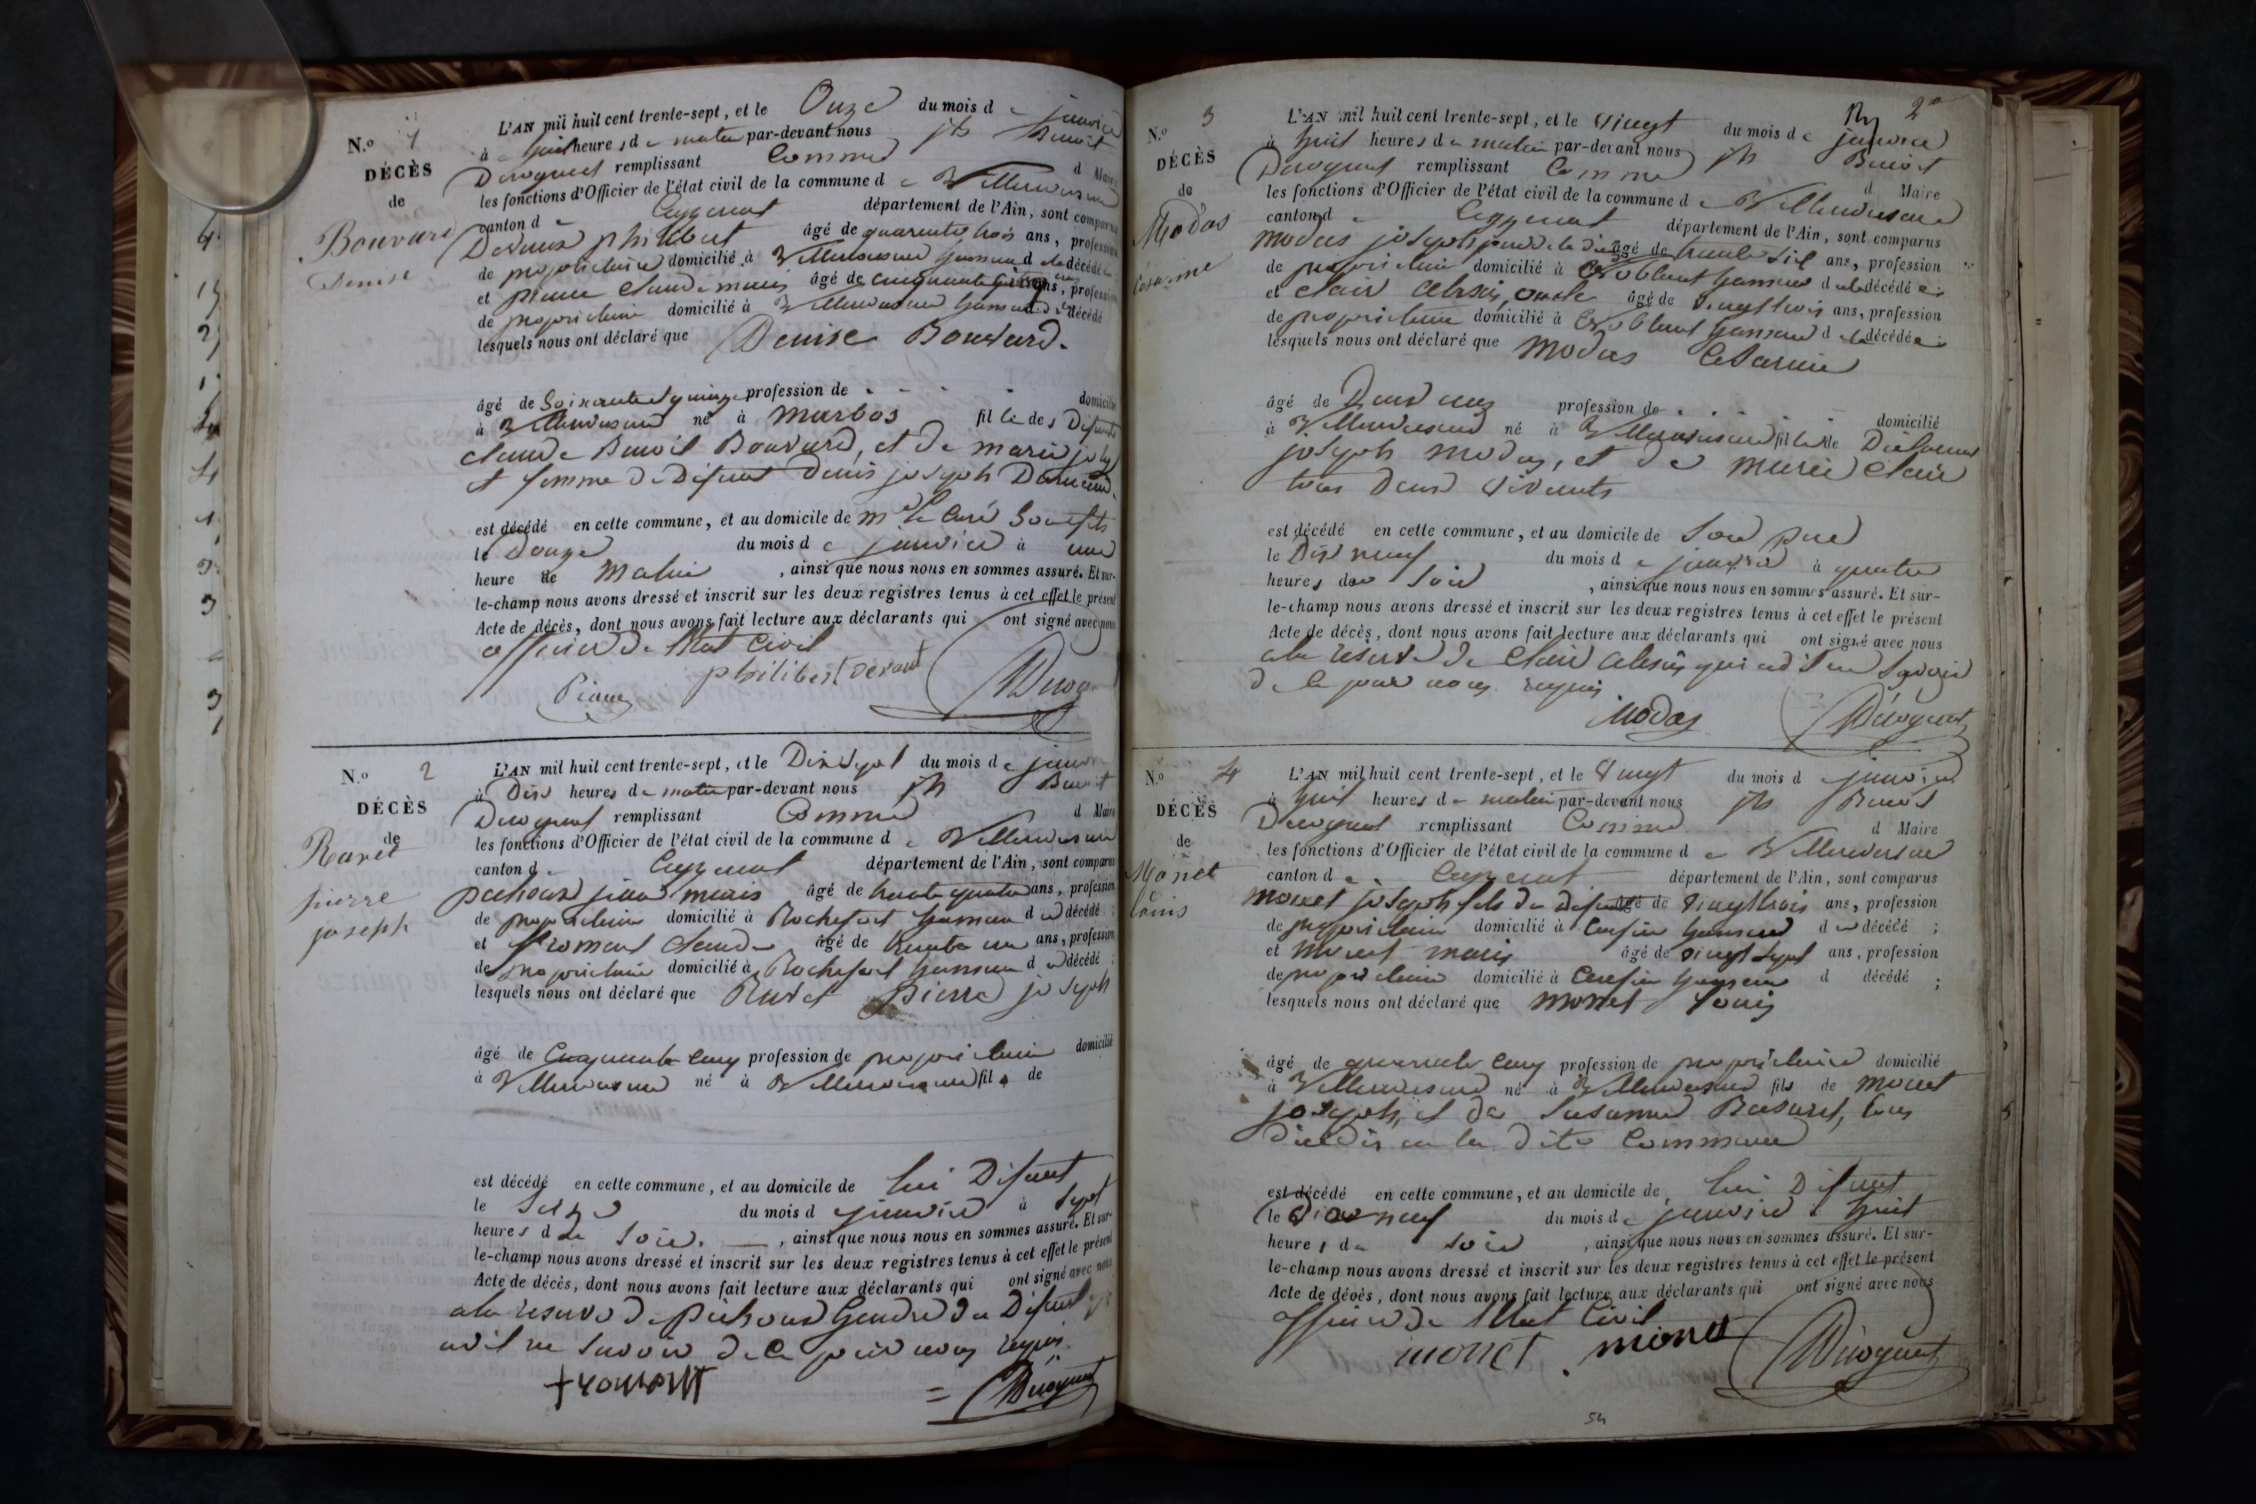 N.º 1
DÉCÈS
de
Bouvard
Denise
L'AN mil huit cent trente-sept, et le Onze du mois de janvier
à huit heures de matin par-devant nous jh Benoit
Derognat remplissant Comme d Maire
les fonctions d'Officier de l'état civil de la commune de Villereversure
canton de Ceyzeriat département de l'Ain, sont comparus
Devaux philibert âgé de quarante trois ans, profession
de propriétaire domicilié à Villereversure hameau d décédé
et pierre Claude marie âgé de cinquante ans, profession
de propriétaire domicilié à Villereversure hameau d décédé
lesquels nous ont déclaré que Denise Bouvard.
âgé de Soixante et quinze profession de - - - domicilié
à Villereversure né à Marbos fille des Défunts
claude Benoit Bouvard, et de marie joly
et femme de Défunt denis joseph
est décédé en cette commune, et au domicile de mr le Curé Son fils
le Douze du mois de janvier à une
heure de Matin, ainsi que nous nous en sommes assuré. Et sur-
le-champ nous avons dressé et inscrit sur les deux registres tenus à cet effet le présent
Acte de décès, dont nous avons fait lecture aux déclarants qui ont signé avec nous
officier de l'état Civil
philibert Devaux
N.º 2
DÉCÈS
de
Ravet
pierre
joseph
L'AN mil huit cent trente-sept, et le Dix sept du mois de janvier
à Dix heures de matin par-devant nous jh Benoit
Derognat remplissant Comme d Maire
les fonctions d'Officier de l'état civil de la commune de Villereversure
canton de Ceyzeriat département de l'Ain, sont comparus
pichoux jean marie âgé de trente quatre ans, profession
de propriétaire domicilié à Rochefort hameau d décédé ;
et fromont Claude âgé de trente un ans, profession
de propriétaire domicilié à Rochefort hameau d décédé ;
lesquels nous ont déclaré que Ravet pierre joseph
âgé de Cinquante cinq profession de propriétaire domicilié
à Villereversure né à Villereversure fils de
est décédé en cette commune, et au domicile de lui Défunt
le Seize du mois de janvier à Sept
heures de Soir. , ainsi que nous nous en sommes assuré. Et sur-
le-champ nous avons dressé et inscrit sur les deux registres tenus à cet effet le présent
Acte de décès, dont nous avons fait lecture aux déclarants qui ont signé avec nous
a la réserve de pichoux Gendre du Défunt
a dit ne Savoir de ce pour nous requis.
N.º 3
DÉCÈS
de
Modas
Césarine
2
L'AN mil huit cent trente-sept, et le Vingt du mois de janvier
à huit heures de matin par-devant nous jh Benoit
Derognat remplissant Comme d Maire
les fonctions d'Officier de l'état civil de la commune de Villereversure
canton de Ceyzeriat département de l'Ain, sont comparus
modas joseph pere de la âgé de trente Six ans, profession
de propriétaire domicilié à hameau d décédé
et Clair Alexis, oncle âgé de Vingt trois ans, profession
de propriétaire domicilié à hameau d décédé
lesquels nous ont déclaré que Modas Césarine
âgé de Deux ans profession de - - - domicilié
à Villereversure né à Villereversure fille de
joseph modas, et de marie Clair
tous deux Vivants
est décédé en cette commune, et au domicile de Son pere
le Dix neuf du mois de janvier à quatre
heures du Soir , ainsi que nous nous en sommes assuré. Et sur-
le-champ nous avons dressé et inscrit sur les deux registres tenus à cet effet le présent
Acte de décès, dont nous avons fait lecture aux déclarants qui ont signé avec nous
a la réserve de Clair Alexis qui a dit ne Savoir
de ce pour nous requis
Modas Derognat
N.º 4
DÉCÈS
de
Monet
Louis
L'AN mil huit cent trente-sept, et le Vingt du mois d janvier
à huit heures de matin par-devant nous jh Benoit
Derognat remplissant Comme d Maire
les fonctions d'Officier de l'état civil de la commune de Villereversure
canton de Ceyzeriat département de l'Ain, sont comparus
monet joseph fils du Défunt âgé de Vingt trois ans, profession
de propriétaire domicilié à hameau d décédé ;
et Monet marie âgé de vingt sept ans, profession
de propriétaire domicilié à hameau d décédé ;
lesquels nous ont déclaré que monet Louis
âgé de quarante cinq profession de propriétaire domicilié
à Villereversure né à Villereversure fils de monet
joseph, et de Susanne tous
Décédés en la Dite Commune
est décédé en cette commune, et au domicile de lui Défunt
le Dix neuf du mois de janvier à huit
heures de Soir , ainsi que nous nous en sommes assuré. Et sur-
le-champ nous avons dressé et inscrit sur les deux registres tenus à cet effet le présent
Acte de décès, dont nous avons fait lecture aux déclarants qui ont signé avec nous
officier de l'état Civil
monet monet Derognat
54